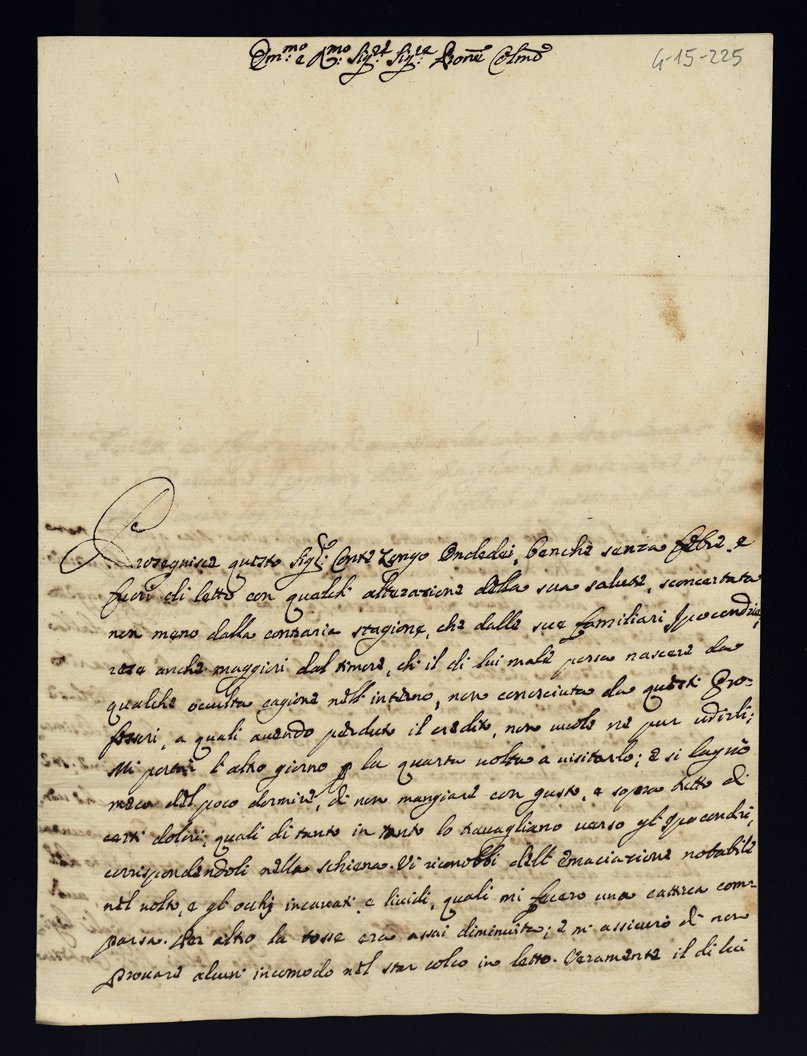 Ill:mo e R:mo Sig:r Sig:re Prone Colmo
4-15-225
Proseguisce questo Sig:r Conte Zongo Ondedei, benche senza febre, e
fuori di letto con qualch' alterazione della sua salute, sconcertata
non meno dalla contraria stagione, che dalle sue familiari Ipocondrie,
rese anche maggiori dal timore, ch' il di lui male possa nascere da
qualche occulta cagione nell' interno, non conosciuta da questi Pro-
fessori, a quali avendo perduto il credito, non vuole ne pur udirli;
Mi portai l' altro giorno p la quarta volta a visitarlo; e si lagnò
meco del poco dormire, di non mangiare con gusto, e sopra tutto di
certi dolori, quali di tanto in tanto lo travagliano verso gl' Ipocondri,
corrispondendoli nella schiena. Vi riconobbi dell' emaciazione notabile
nel volto, e gl' occhj incavati, e lividi, quali mi fecero una cattiva com-
parsa. Per altro la tosse era assai diminuita; e m' assicurò di non
provare alcun' incomodo nel star colco in letto. Veramente il di lui